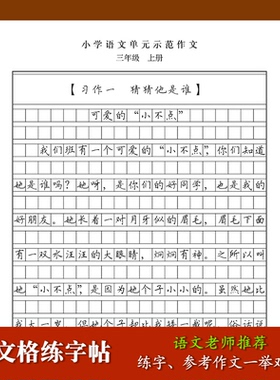 小学语文单元示范作文
三年级 上册
【习作一 猜猜他是谁】
可爱的“小不点”
我们班有一个可爱的“小不点”，你们知道
她是谁吗？她呀，是你们的好同学，也是我的
好朋友。她长着一对月牙似的眉毛，眉毛下面
有一双水汪汪的大眼睛，炯炯有神。之所以叫
她“小不点”，是因为她个子小小的。虽然她比
我大一岁，但她个子却比我矮一截呢。俗话说
文格练字帖
语文老师推荐
练字、参考作文一举双